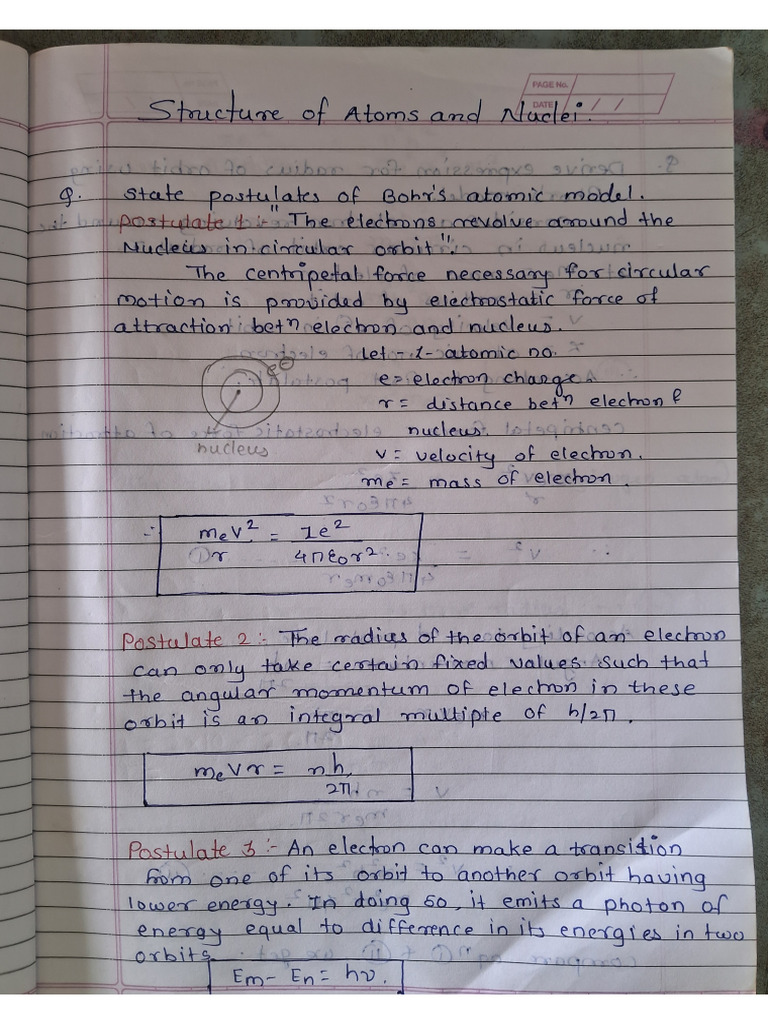 PAGE No.
DATE / /
Structure of Atoms and Nuclei.
Q. State postulates of Bohr's atomic model.
Postulate 1 :- "The electrons revolve around the
Nucleus in circular orbit".
The centripetal force necessary for circular
motion is provided by electrostatic force of
attraction betⁿ electron and nucleus.
let - z - atomic no.
e = electron charge.
r = distance betⁿ electron &
nucleus.
v = velocity of electron.
me = mass of electron.
e⊖
nucleus
∴ meV²/r = ze²/4πε0r².
Postulate 2 :- The radius of the orbit of an electron
can only take certain fixed values such that
the angular momentum of electron in these
orbit is an integral multiple of h/2π.
meVr = nh/2π.
Postulate 3 :- An electron can make a transition
from one of its orbit to another orbit having
lower energy. In doing so, it emits a photon of
energy equal to difference in its energies in two
orbits.
Em - En = hν.